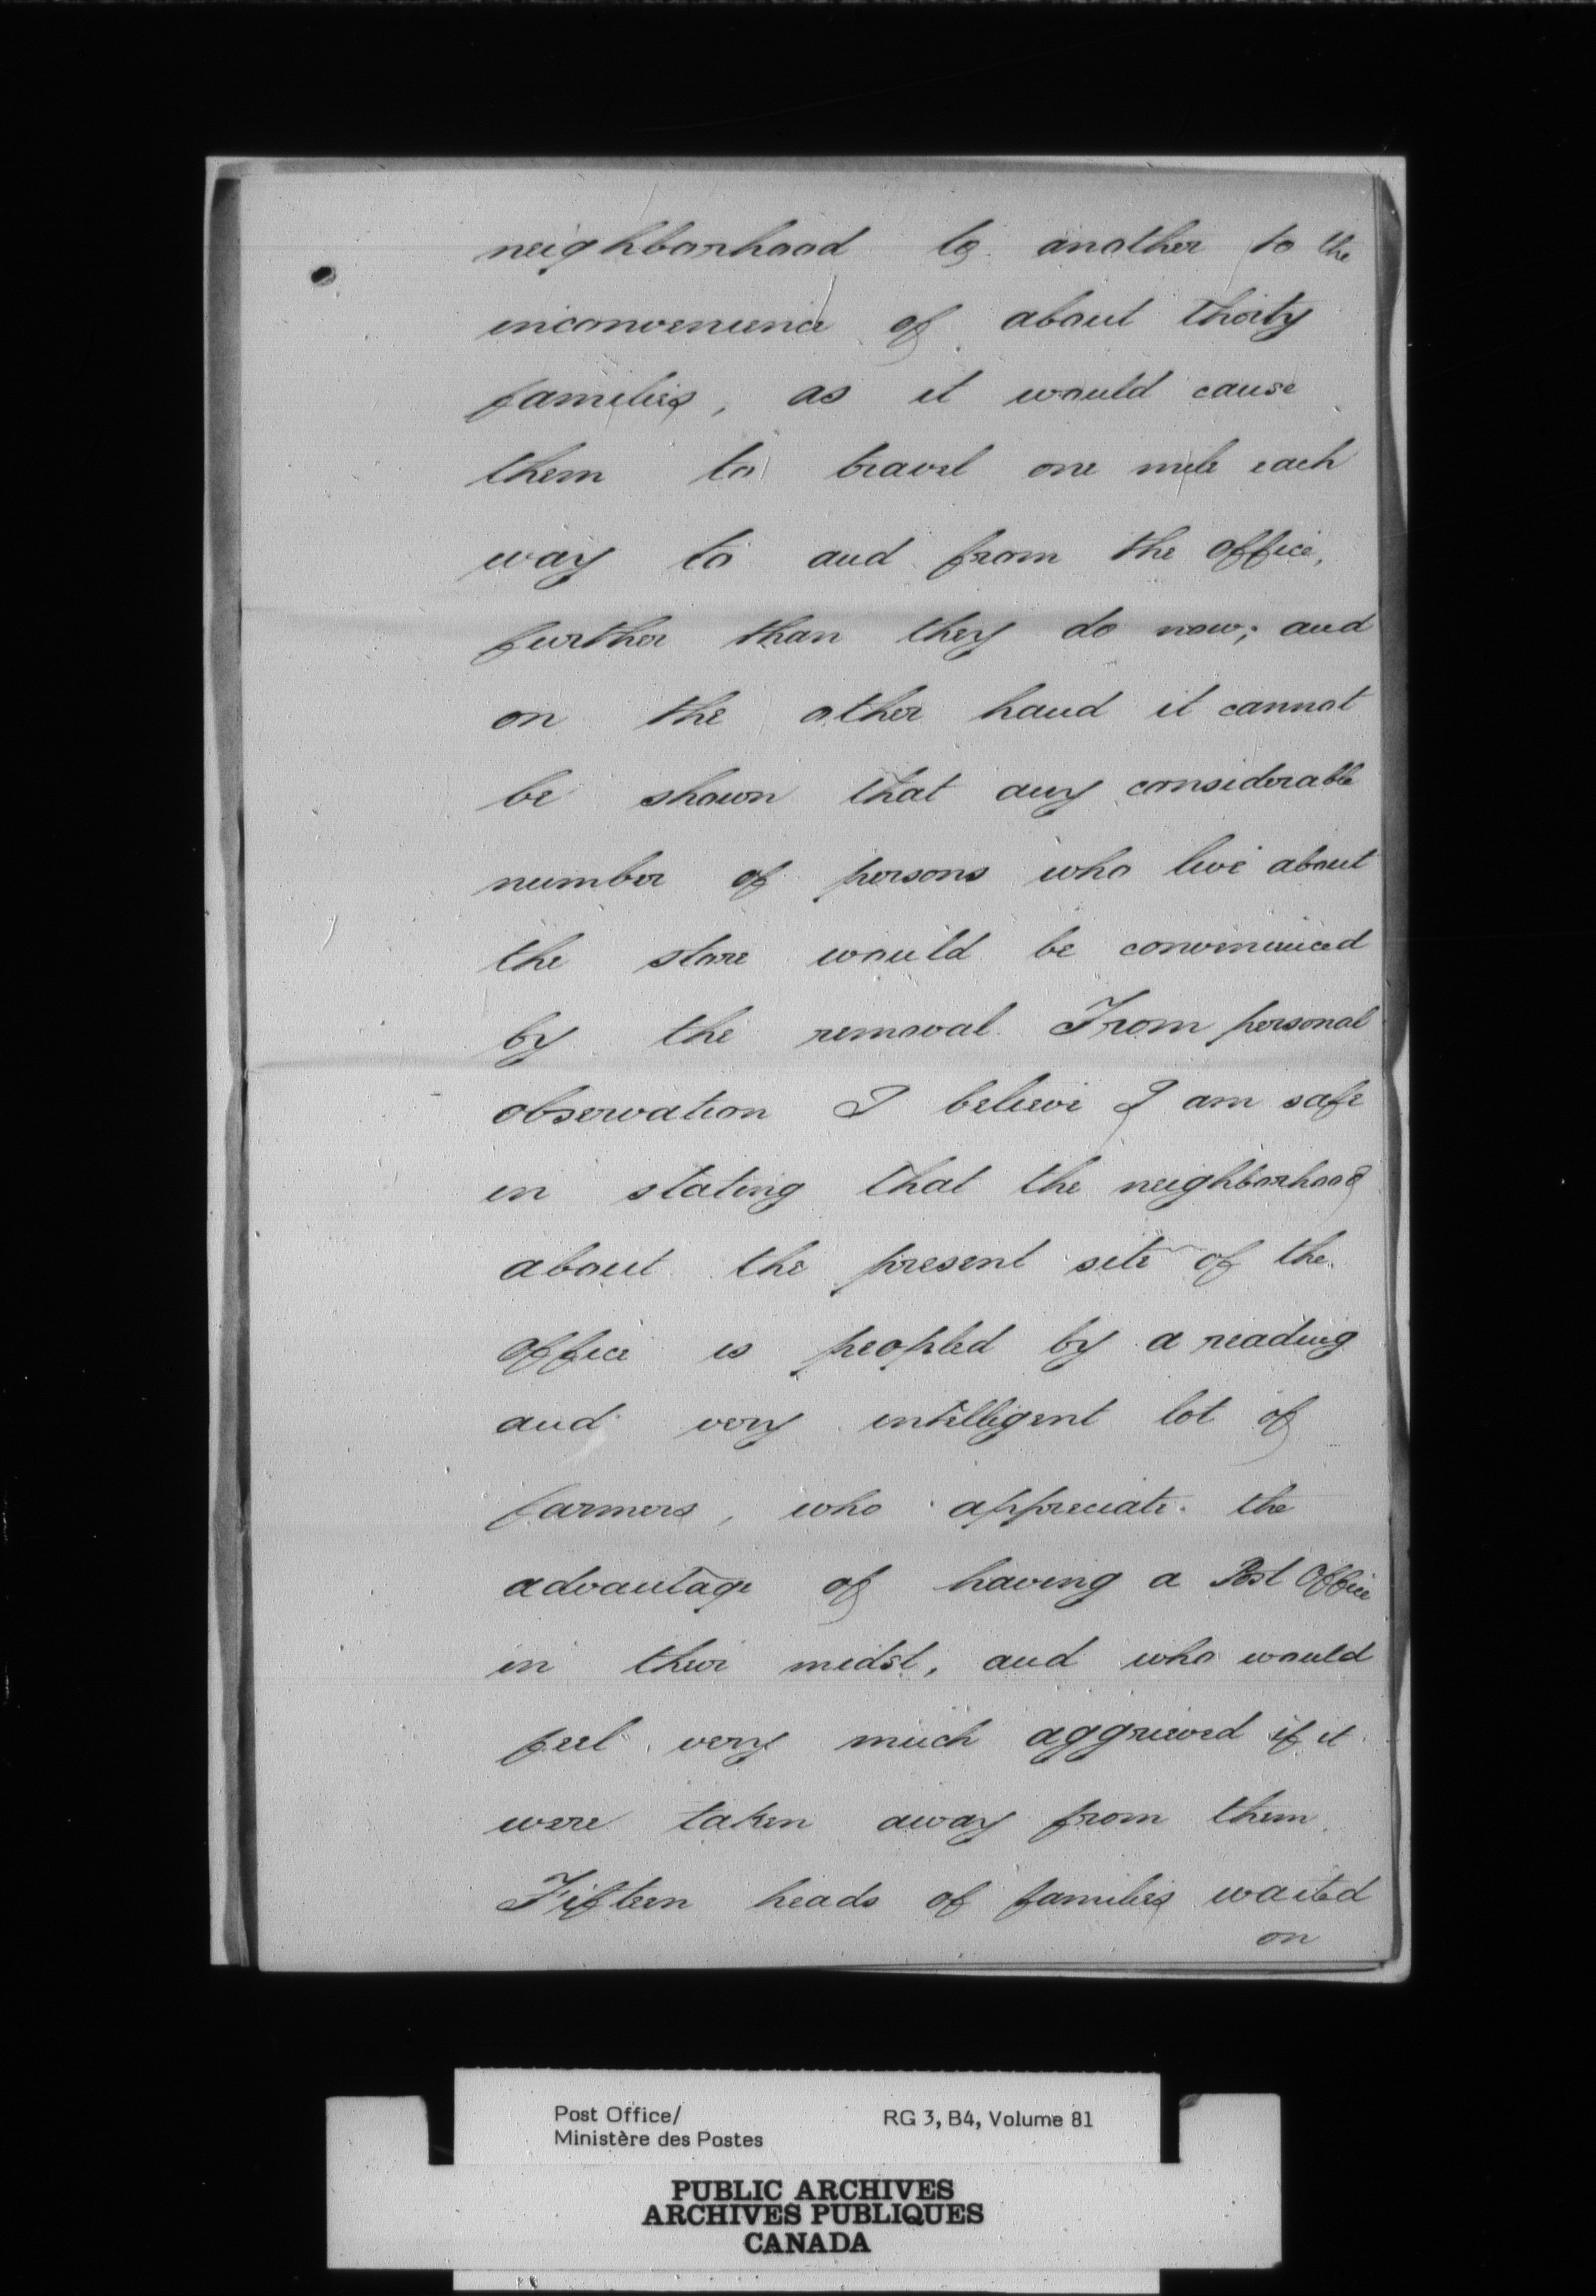 neighborhood to another to the
inconvenience of about thirty
families, as it would cause
them to travel one mile each
way to and from the office,
further than they do now; and
on the other hand it cannot
be shown that any considerable
number of persons who live about
the store would be convenienced
by the removal. From personal
observation I believe I am safe
in stating that the neighborhood
about the present site of the
office is peopled by a reading
and very intelligent lot of
farmers, who appreciate the
advantage of having a Post Office
in their midst, and who would
feel very much aggrieved if it
were taken away from them.
Fifteen heads of families waited
on
Post Office/
Ministère des Postes
RG 3, B4, Volume 81
PUBLIC ARCHIVES
ARCHIVES PUBLIQUES
CANADA